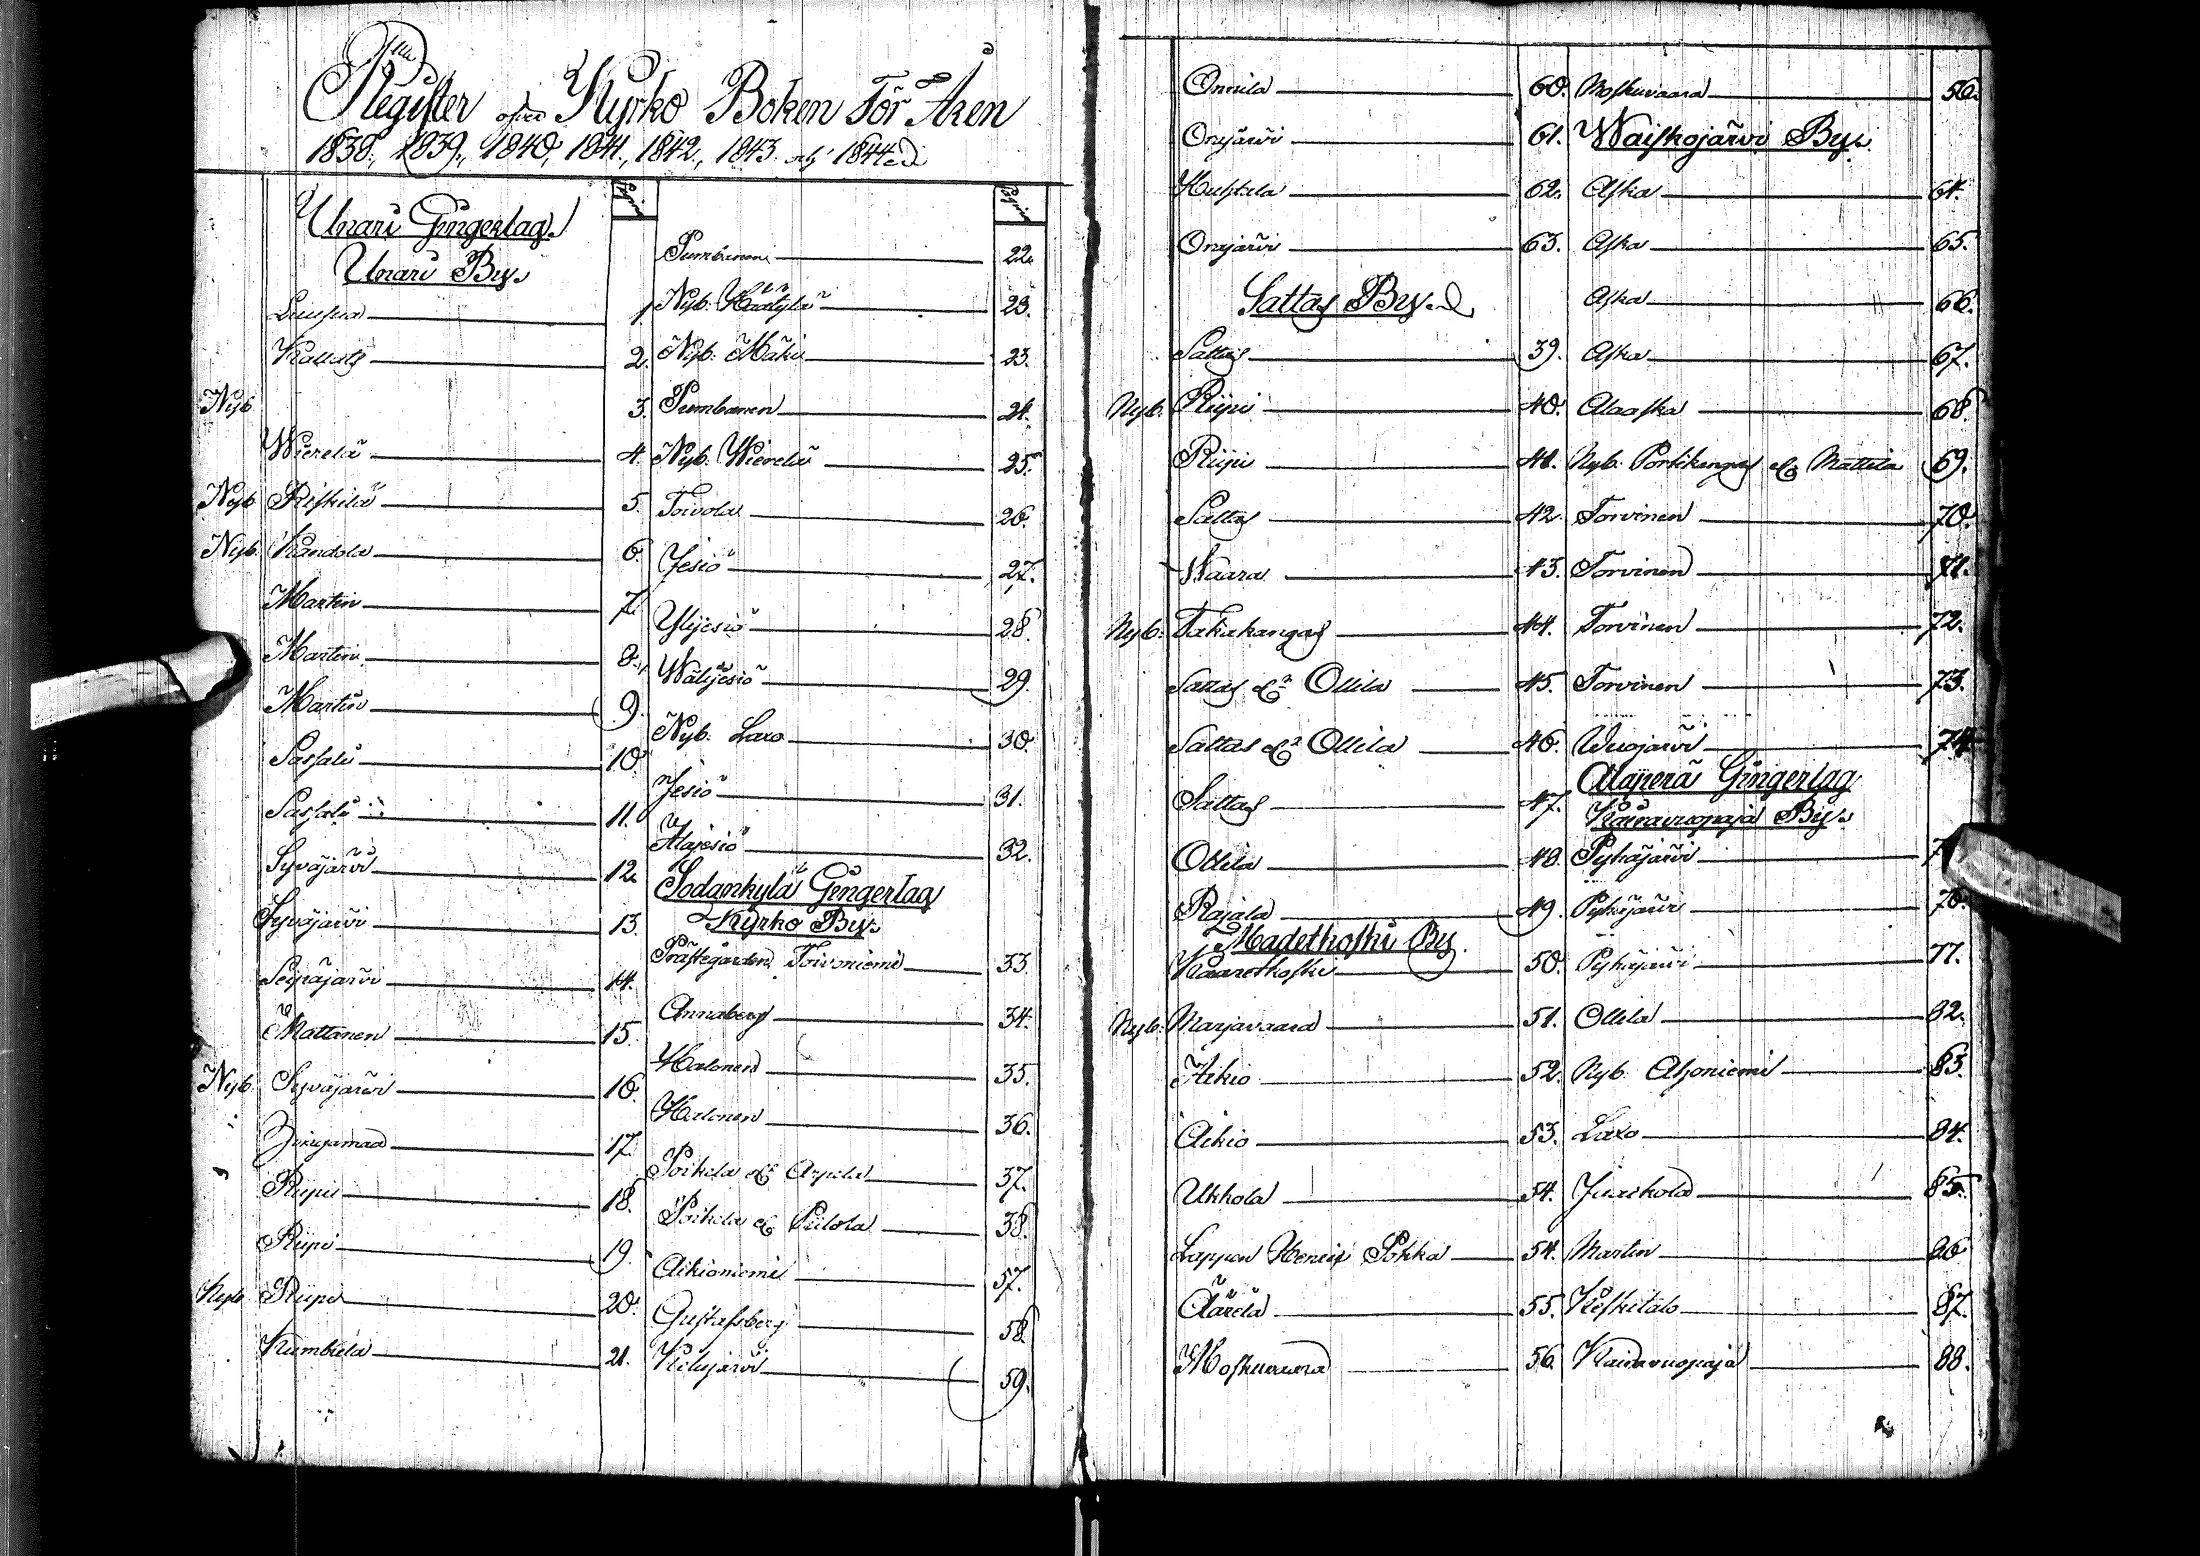 Register öfver Kyrko Boken För Åren
1838., 1839., 1840, 1841., 1842., 1843. och 1844.
Pagina
Unari Gingerlag
Unari By.
Liuska 1.
2.
Nyb 3.
Wierelä 4.
Nyb Riskilä 5.
Nyb. Kandola 6.
Martin 7.
Martin 8.
Martin 9.
Sassali 10.
Sassali 11.
Syväjärvi 12.
Syväjärvi 13.
Seipäjärvi 14.
Mattanen 15.
Nyb. Syväjärvi 16.
17.
Riipi 18.
Riipi 19.
Nyb. Riipi 20.
Kumbula 21.
Pagina
Pumbanen 22.
Nyb. Häätylä 23.
Nyb. Mäki 23.
Pumbanen 24.
Nyb. Wierelä 25.
Toivola 26.
Jesiö 27.
Ylijesiö 28.
Wälijesiö 29.
Nyb. Laxo 30.
Jesiö 31.
Alajesiö 32.
Sodankylä Gingerlag
Kyrko By.
Prästegården Toivoniemi 33.
Annaberg 34.
Halonen 35.
Halonen 36.
Poikela & Arpela 37.
Poikela & Piilola 38.
Aikioniemi 57.
Gustafsberg 58.
Kelujärvi 59.
Onnila 60.
Orajärvi 61.
Huhtela 62.
Orajärvi 63.
Sattas By.
Sattas 39.
Nyb. Riipi 40.
Riipi 41.
Sattas 42.
Waara 43.
Nyb. Takakangas 44.
Sattas & Ollila 45.
Sattas & Ollila 46.
Sattas 47.
Ollila 48.
Rajala 49.
Madetkoski By.
Kaaretkoski 50.
Nyb. Marjavaara 51.
Aikio 52.
Aikio 53.
Ukkola 54.
Lappen Henric Pokka 54.
Äärelä 55.
Moskuvaara 56.
Moskuvaara 56.
Waiskojärvi By.
Aska 64.
Aska 65.
Aska 66.
Aska 67.
Alaaska 68.
Nyb. Portikangas & Mattila 69.
Torvinen 70.
Torvinen 71.
Torvinen 72.
Torvinen 73.
Wuojärvi 74.
Alaperä Gingerlag
Kairavuopaja By.
Pyhäjärvi
Pyhäjärvi 76.
Pyhäjärvi 77.
Ollila 82.
Nyb. Ahoniemi 83.
Laxo 84.
Juuikola 85.
Martin 86
Keskitalo 87.
Kairavuopaja 88.